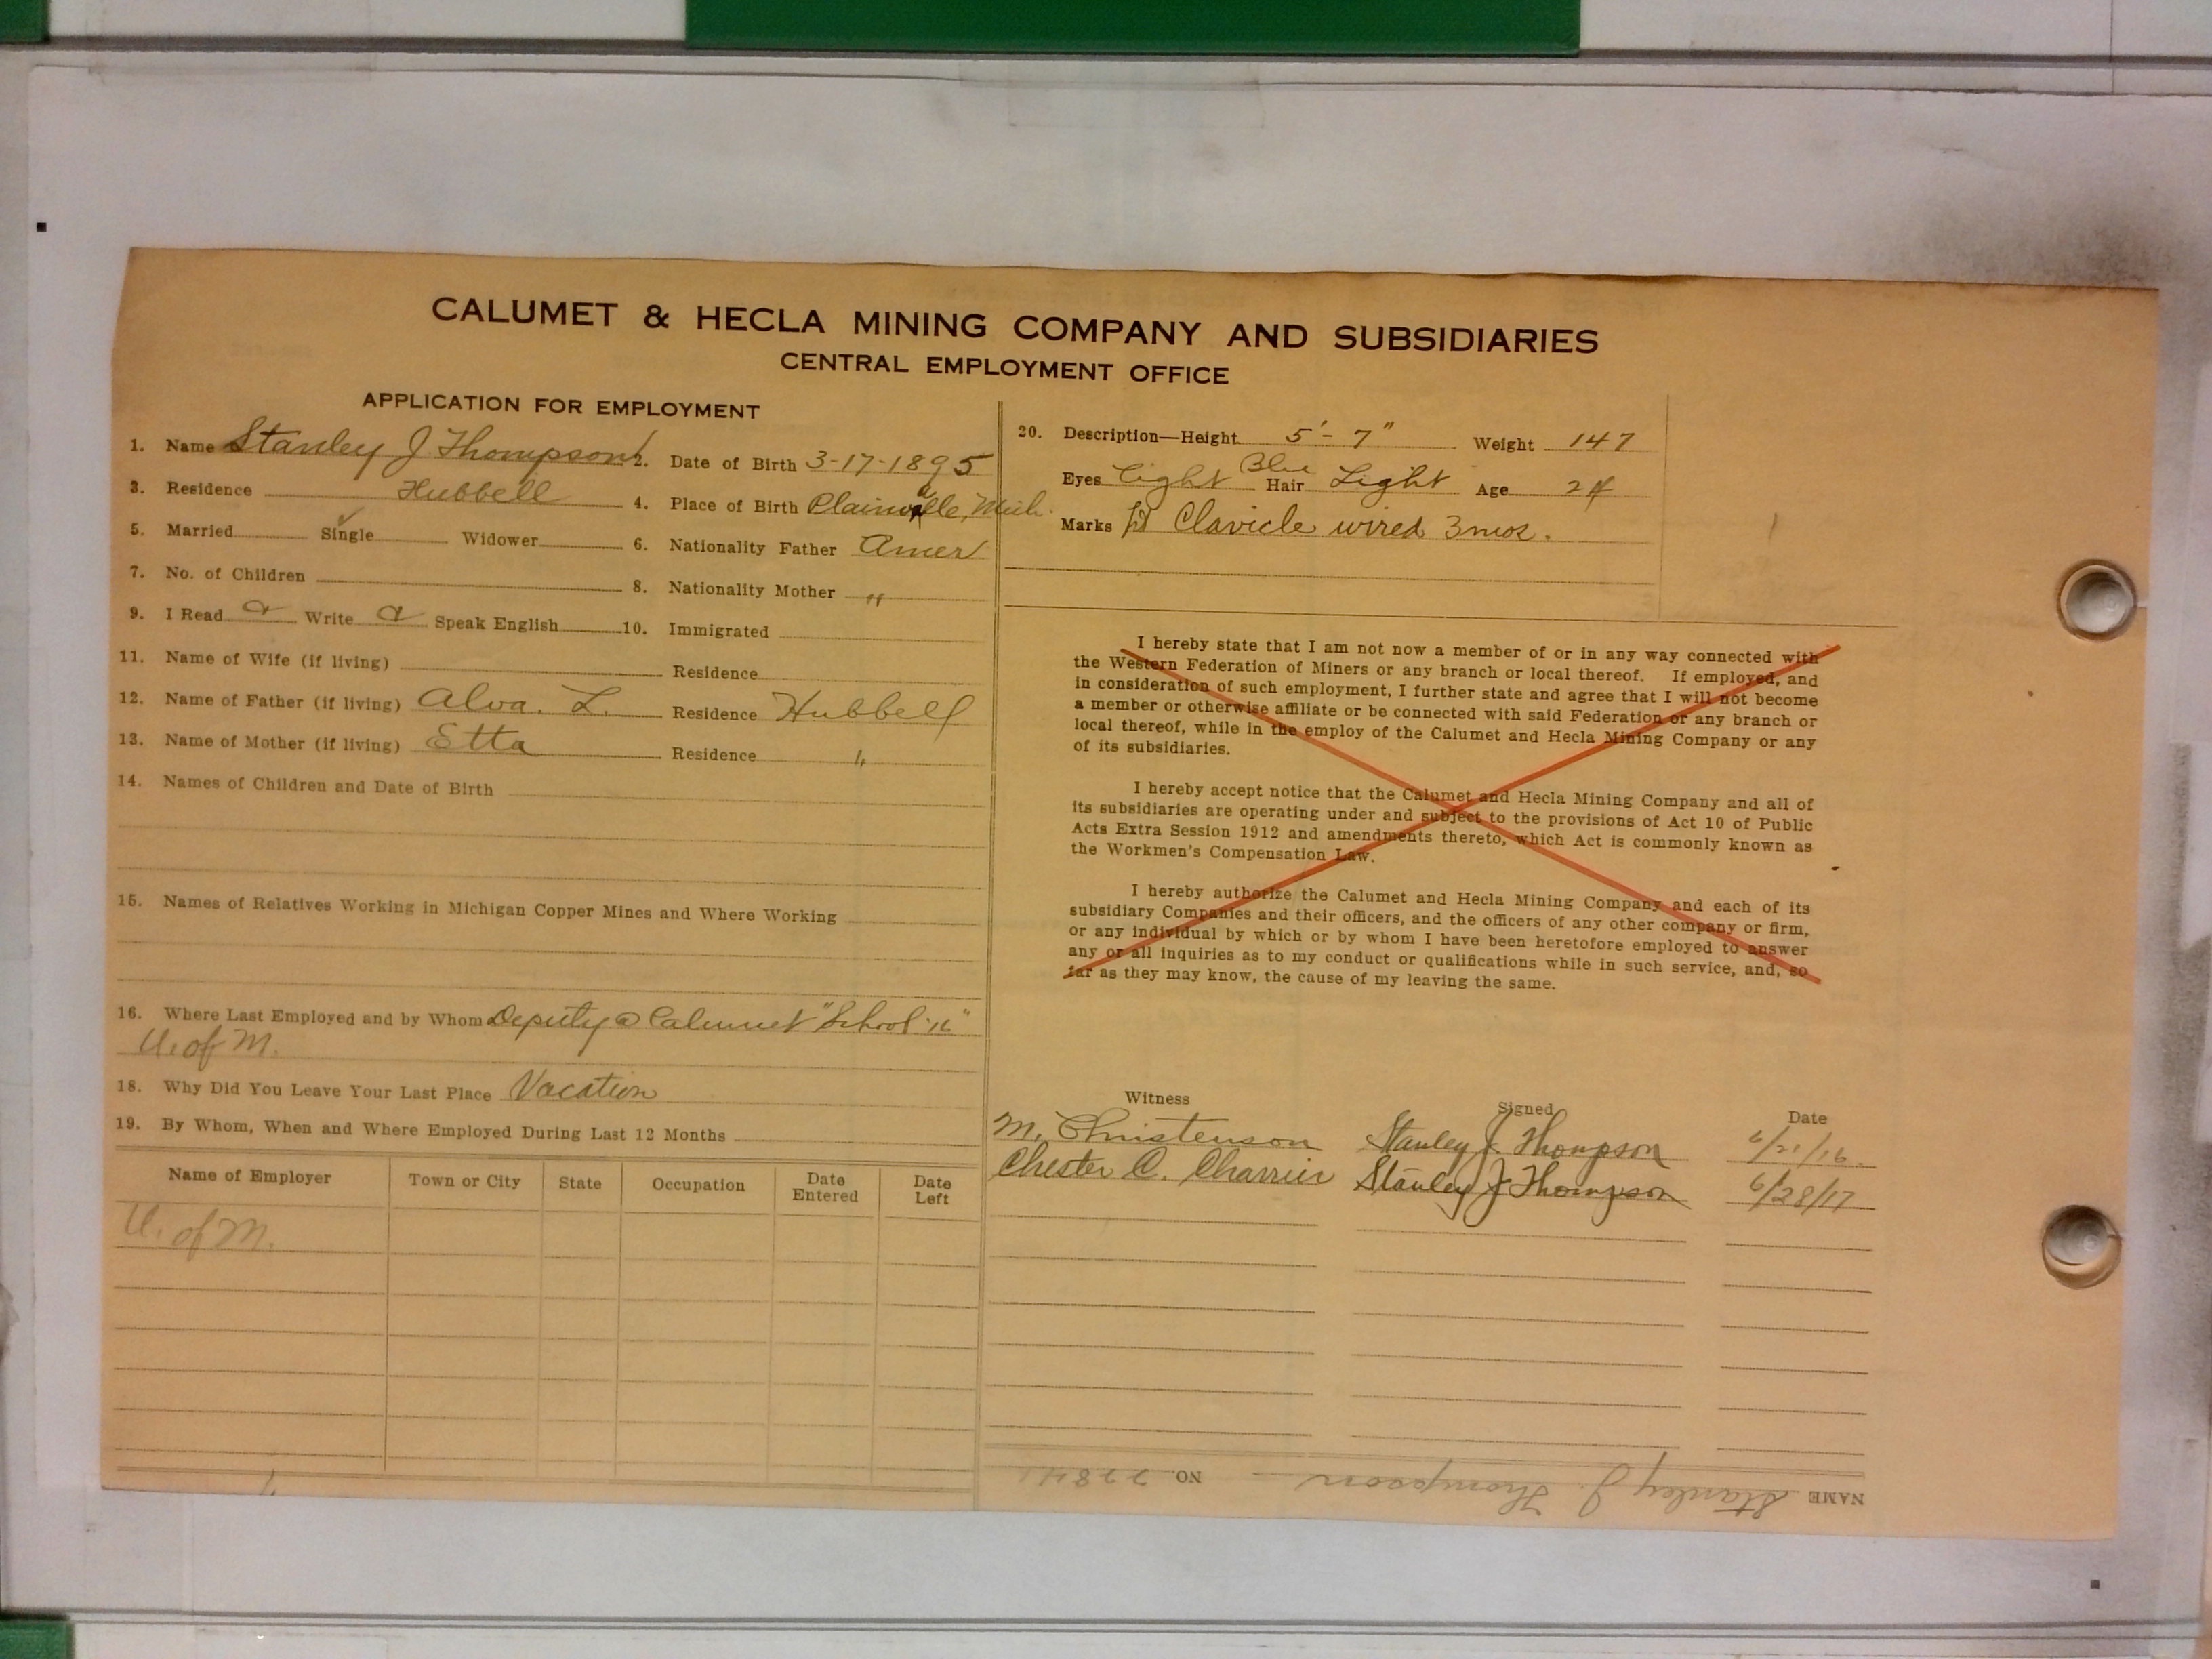 CALUMET & HECLA MINING COMPANY AND SUBSIDIARIES
CENTRAL EMPLOYMENT OFFICE
APPLICATION FOR EMPLOYMENT
1. Name Stanley J. Thompson 2. Date of Birth 3-17-1895
3. Residence Hubbell 4. Place of Birth Mich.
5. Married Single ✓ Widower 6. Nationality Father Amer
7. No. of Children 8. Nationality Mother "
9. I Read a Write a Speak English 10. Immigrated
11. Name of Wife (if living) Residence
12. Name of Father (if living) Alva. L. Residence Hubbell
13. Name of Mother (if living) Etta Residence "
14. Names of Children and Date of Birth
15. Names of Relatives Working in Michigan Copper Mines and Where Working
16. Where Last Employed and by Whom Deputy @ Calumet "School '16"
U. of M.
18. Why Did You Leave Your Last Place Vacation
19. By Whom, When and Where Employed During Last 12 Months
Name of Employer Town or City State Occupation Date Entered Date Left
U. of M.
20. Description—Height 5'-7" Weight 147
Eyes Light Blue Hair Light Age
Marks Clavicle wired 3 mos.
I hereby state that I am not now a member of or in any way connected with
the Western Federation of Miners or any branch or local thereof. If employed, and
in consideration of such employment, I further state and agree that I will not become
a member or otherwise affiliate or be connected with said Federation or any branch or
local thereof, while in the employ of the Calumet and Hecla Mining Company or any
of its subsidiaries.
I hereby accept notice that the Calumet and Hecla Mining Company and all of
its subsidiaries are operating under and subject to the provisions of Act 10 of Public
Acts Extra Session 1912 and amendments thereto, which Act is commonly known as
the Workmen's Compensation Law.
I hereby authorize the Calumet and Hecla Mining Company and each of its
subsidiary Companies and their officers, and the officers of any other company or firm,
or any individual by which or by whom I have been heretofore employed to answer
any or all inquiries as to my conduct or qualifications while in such service, and, so
far as they may know, the cause of my leaving the same.
Witness Signed Date
M. Christenson Stanley J. Thompson 6/21/16.
Chester C. Charrier Stanley J Thompson 6/28/17
NAME Stanley J. Thompson NO.